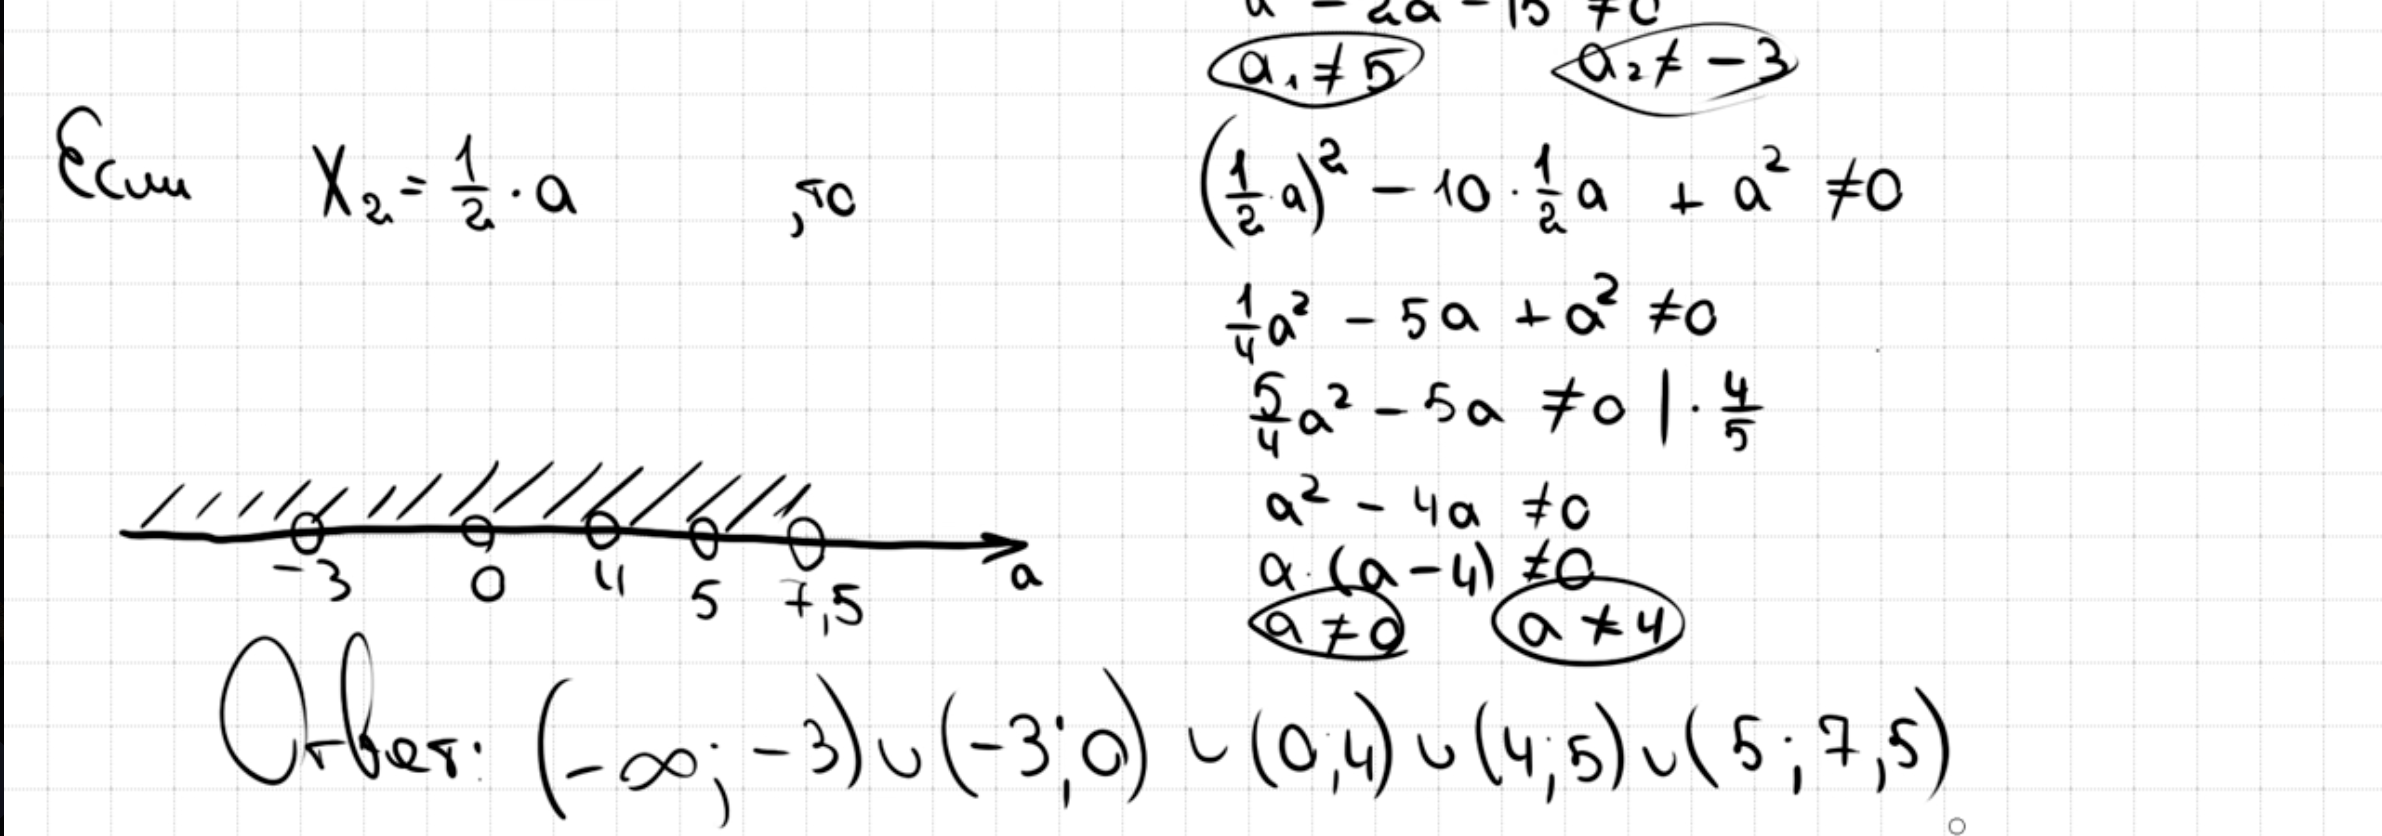 a² - 2a - 15 ≠ 0
a₁ ≠ 5 a₂ ≠ -3
Если X₂ = 1/2 · a , то (1/2 · a)² - 10 · 1/2 a + a² ≠ 0
1/4 a² - 5a + a² ≠ 0
5/4 a² - 5a ≠ 0 | · 4/5
a² - 4a ≠ 0
a · (a - 4) ≠ 0
a ≠ 0 a ≠ 4
-3 0 4 5 7,5 a
Ответ: (-∞; -3) ∪ (-3; 0) ∪ (0; 4) ∪ (4; 5) ∪ (5; 7,5)